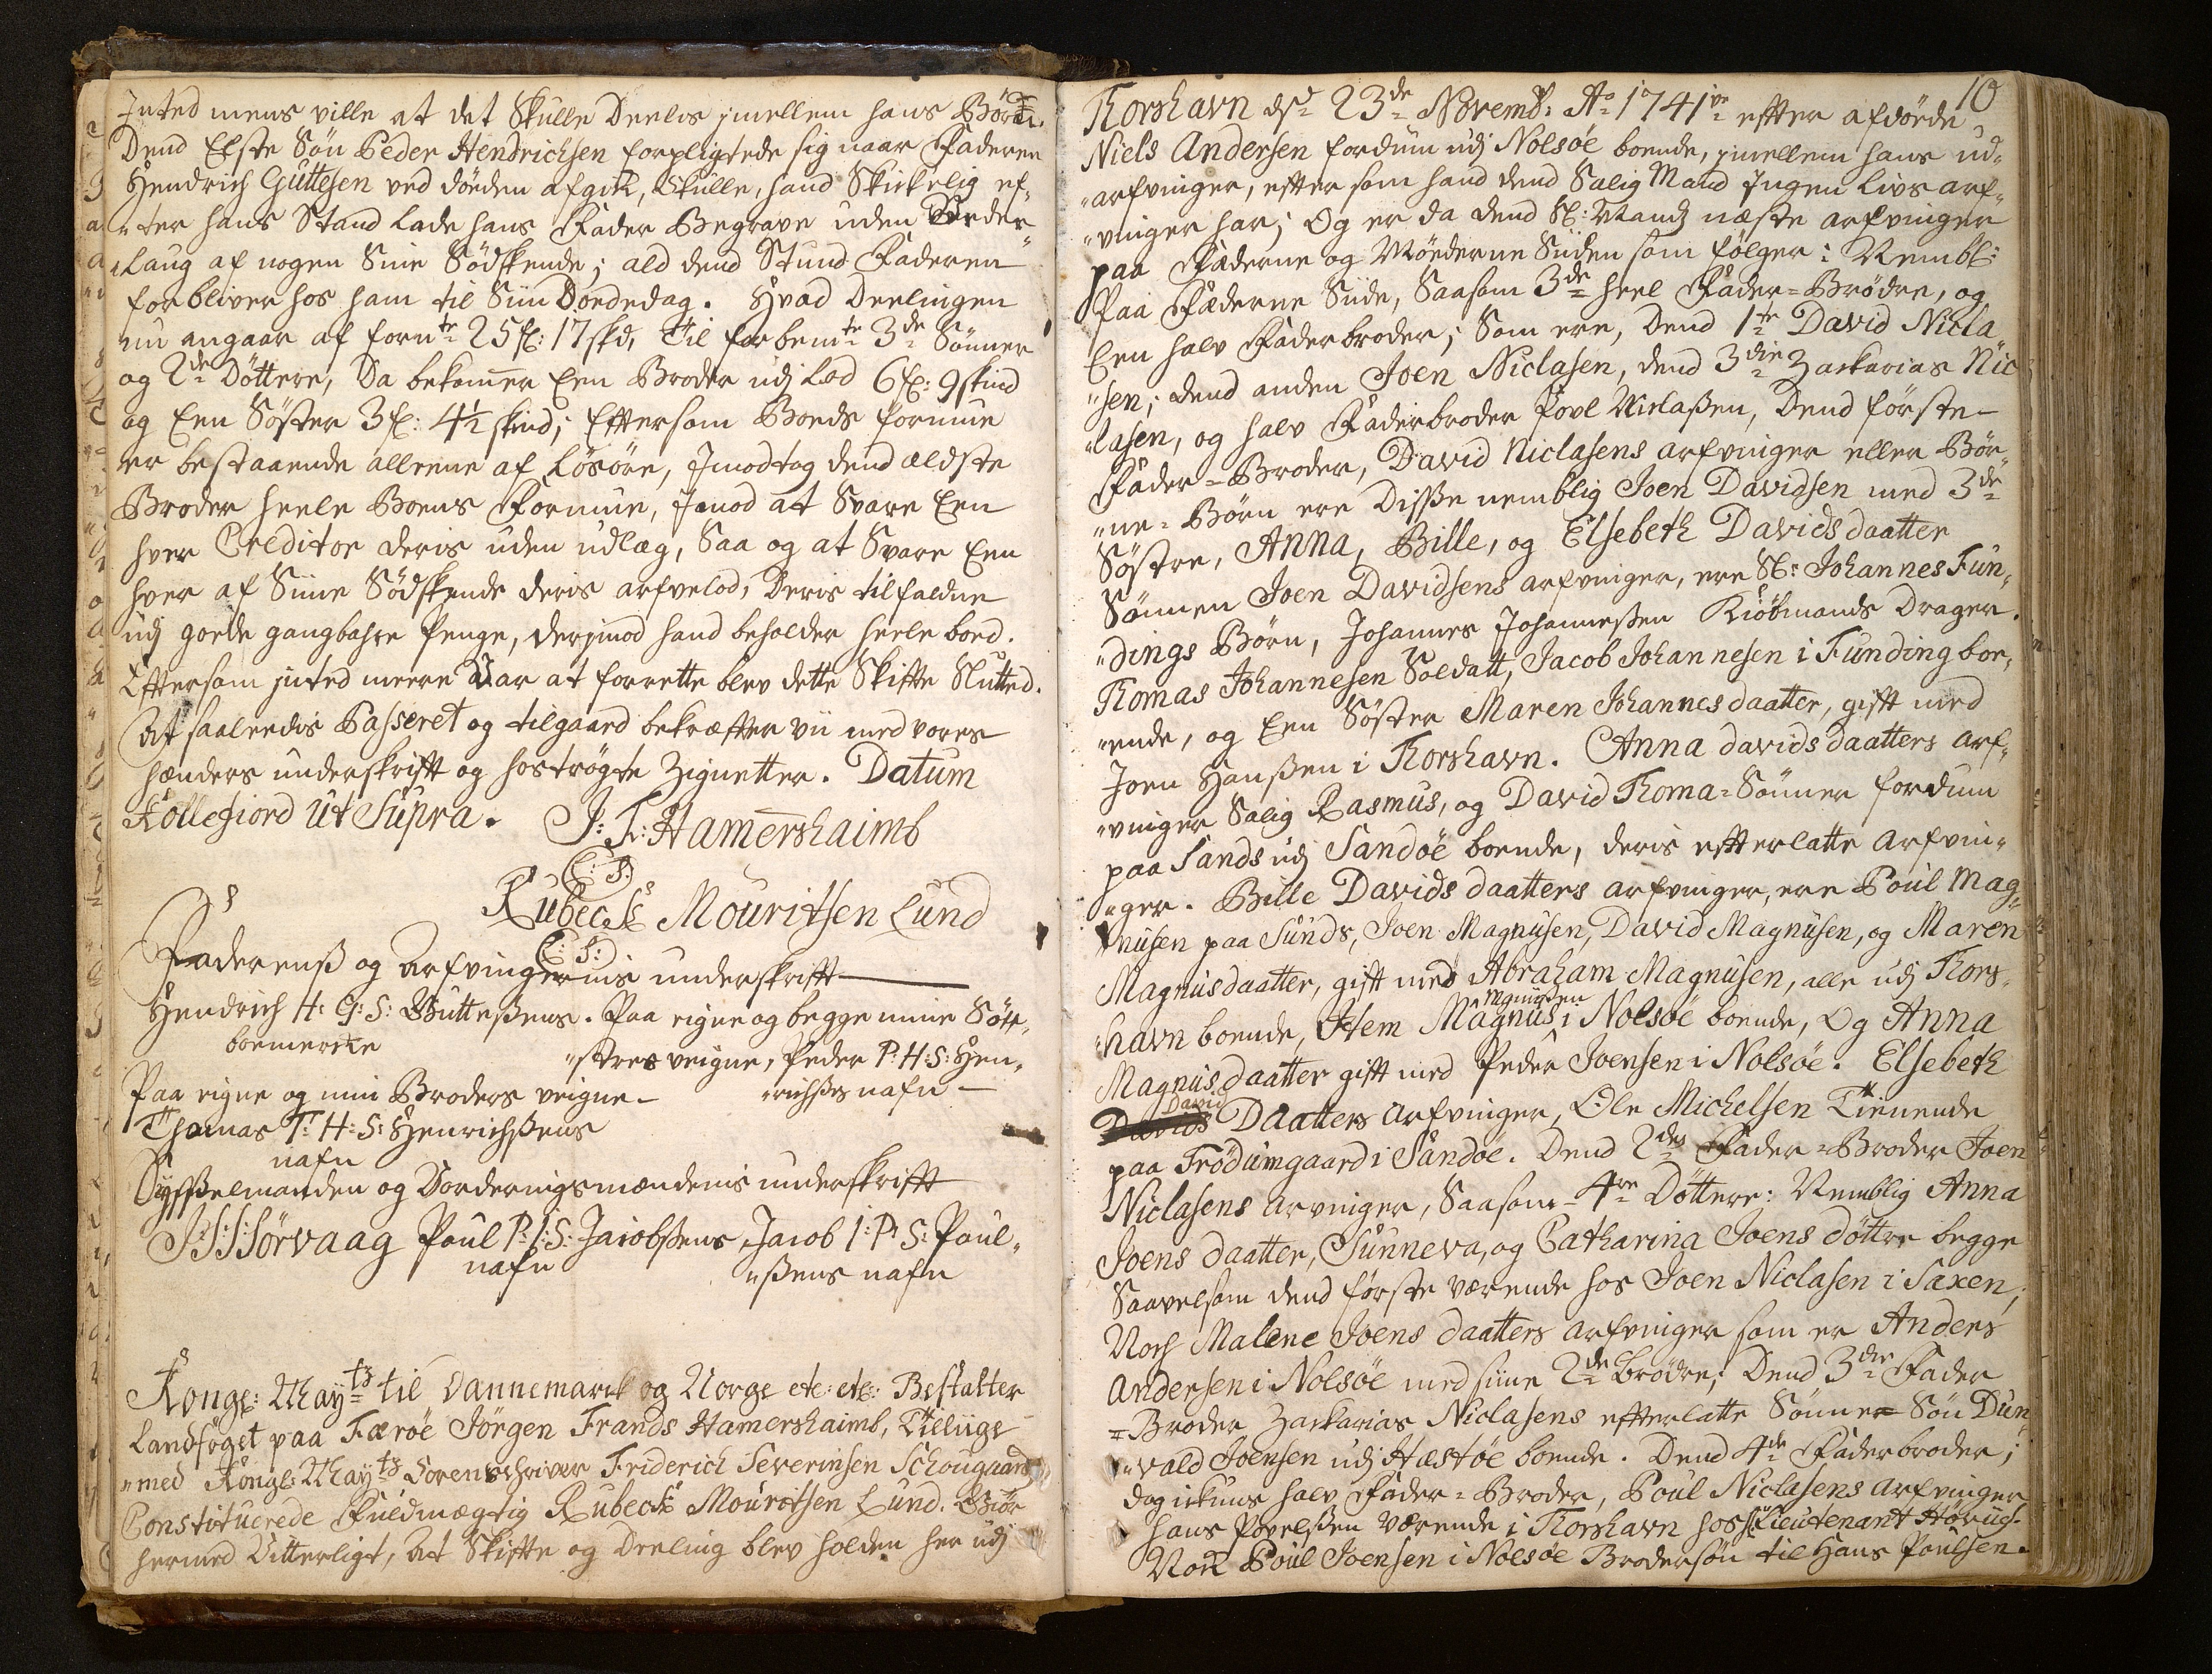 Inted mens ville at det Skulle Deelis jmellem hans Börn.
Dend Elste Sön Peder Hendrichsen forpligtede sig naar Faderen
Hendrich Guttesen ved döden afgik, Skulle, hand Skickelig ef„
„ter hans Stand lade hans Fader Begrave uden Veder„
„laug af nogen Sine Södskende; ald dend Stund Faderen
forbliver hos ham til Siin Dödedag. Hvad Deelingen
nu angaar af fornte 25 fl: 17 skd, Til forbemte 3de Sönner
og 2de Döttere, Da bekommer Een Broder udj Lod 6 fl: 9 skind
og Een Söster 3 fl: 4½ skind; Eftersom Boeds formue
er bestaaende allene af Lösöre, Jmodtog dend ældste
Broder heele Boens Formue, Jmod at Svare Een
hver Creditor deris uden udlæg, Saa og at Svare Een
hver af Sine Södskende deris arfvelod, Deris tilfaldne
udj goede gangbahre Penge, derjmod hand beholder heele boed.
Eftersom jnted meere Var at forrette blev dette Skifte Slutted.
At saaleedis Passeret og tilgaaed bekræfter vii med vores
hænders underskrift og hoströgte Zignetter. Datum
Kollefiord ut Supra. J: F: Hamershaimb
(L: S:)
Rubeck Mouritsen Lund
(L: S:)
Faderens og Arfvingernis underskrift
Hendrich H: G: S: Guttesens. Paa eigne og begge mine Söst„
boemercke „stres veigne, Peder P: H: S: Hen„
Paa eigne og min Broders veigne „richses nafn
Thomas T: H: S: Henrichsens
nafn
Sysselmanden og Vorderingsmændenis underskrift
J: J: Sörvaag Poul P: J: S: Jacobsens, Jacob J: P: S: Poul„
nafn „sens nafn
Kongl: Maytz til Dannemarck og Norge etc: etc: Bestalter
Landfoget paa Færöe Jörgen Frands Hamershaimb, Tilliige
„med Kongl: Maytz Sorenschriver Friderich Severinsen Schougaard
Constituerede Fuldmægtig Rubeck Mouritsen Lund. Giör
hermed Vitterligt, At Skifte og Deeling blev holden her udj
10
Thorshavn dsd 23de Novemb: Ao 1741ve efter afdöede
Niels Andersen fordum udj Nolsöe boende, jmellem hans ud„
„arfvinger, efter som hand dend Salig Mand Ingen Livs arf„
„vinger har; Og er da dend Sl: Mands næste arfvinger
paa Fæderne og Möederne Siiden som fölger: Nembl:
Paa Fæderne Siide, Saasom 3de heel Fader=Brödre, og
Een halv Faderbroder; Som ere, Dend 1te David Nicla
„sen; dend anden Joen Niclasen, dend 3die Zackarias Nic
„lasen, og halv Faderbroder Povl Niclaßen, Dend förste
Fader=Broder, David Niclasens arfvinger eller Bör„
„ne=Börn ere Disse nemblig Joen Davidsen med 3de
Söstre, Anna, Bille, og Elsebeth Davids daatter
Sönnen Joen Davidsens arfvinger, ere Sl: Johannes Fun„
„dings Börn, Johannes Johannessen Kiöbmands Drager.
Thomas Johannesen Soldatt, Jacob Johannesen i Funding boe„
„ende, og Een Söster Maren Johannes daatter, gift med
Joen Hanßen i Thorshavn. Anna davids daatters arf„
„vinger Salig Rasmus, og David Thoma=Sönner fordum
paa Sands udj Sandöe boende, deris efterlatte Arfvin„
„ger. Bille Davids daatters arfvinger, ere Poul Mag„
„nusen paa Sunds, Joen Magnusen, David Magnusen, og Maren
Magnusdaatter, gift med Abraham Magnusen, alle udj Thors„
„havn boende, Item Magnus Magnusen i Nolsöe boende, Og Anna
Magnus daatter gift med Peder Joensen i Nolsöe. Elsebeth
David Daatters arfvinger, Ole Michelsen Tienende
paa Trödumgaard i Sandöe. Dend 2den Fader=Broder Joen
Niclasens arvinger, Saasom 4re Döttere: Nemblig Anna
Joens daatter, Sunneva, og Catharina Joens döttre begge
Saavelsom dend förste værende hos Joen Niclasen i Saxen,
Noch Malene Joens daatters arfvinger som er Anders
Andersen i Nolsöe med siine 2de brödre; Dend 3die Fader
=Broder Zackarias Niclasens efterlatte Sönne=Sön Dun
„vald Joensen udj Hæstöe boende. Dend 4de Faderbroder;
dog ickuns halv Fader=Broder, Poul Niclasens arfvinger
Hans Povelsen værende i Thorshavn hos Sl: Lieutenant Hörug.
Noch Poul Joensen i Nolsöe Brodersön til Hans Poulsen.